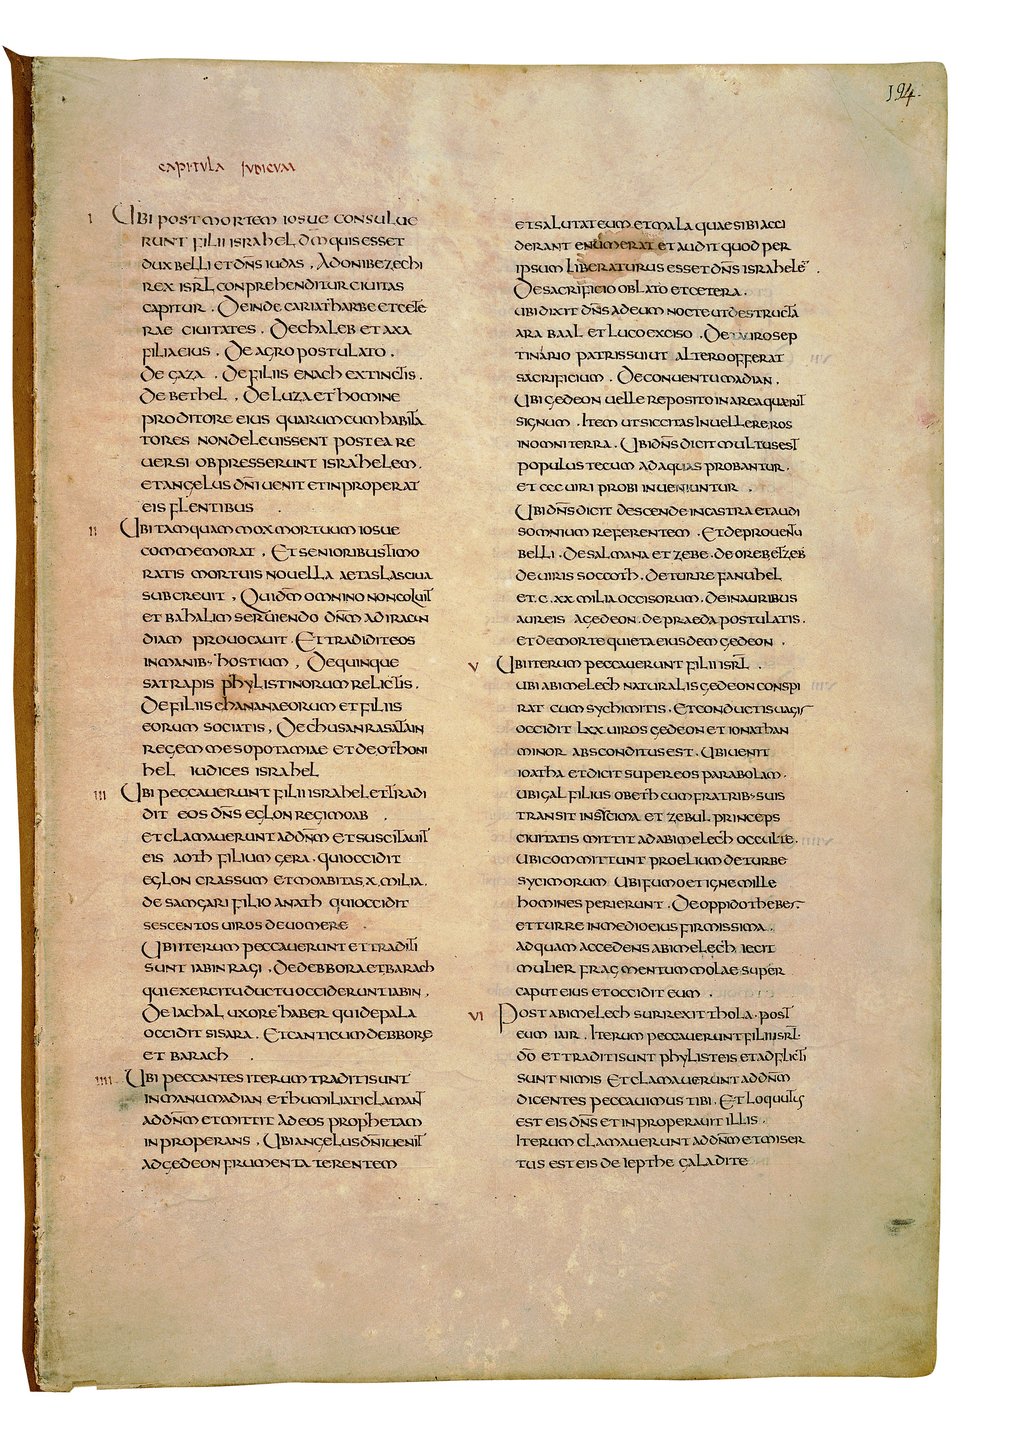 194.
CAPITULA IUDICUM
I UBI POST MORTEM IOSUE CONSULUE
RUNT FILII ISRAHEL DN̄M QUIS ESSET
DUX BELLI ET DN̄S IUDAS . ADONIBEZECHI
REX ISRL̄ CONPREHENDITUR CIUITAS
CAPITUR . DEINDE CARIATHARBE ET CETE
RAE CIUITATES . DE CHALEB ET AXA
FILIA EIUS . DE AGRO POSTULATO .
DE GAZA . DE FILIIS ENACH EXTINCTIS .
DE BETHEL . DE LUZA ET HOMINE
PRODITORE EIUS QUARUM CUM HABITA
TORES NON DELEUISSENT POSTEA RE
UERSI OBPRESSERUNT ISRAHELEM .
ET ANGELUS DN̄I UENIT ET INPROPERAT
EIS FLENTIBUS .
II UBI TAMQUAM MOX MORTUUM IOSUE
COMMEMORAT . ET SENIORIBUS TIMO
RATIS MORTUIS NOUELLA AETAS LASCIUA
SUBCREUIT , QUI DM̄ OMNINO NON COLUIT
ET BAHALIM SERUIENDO DN̄M AD IRACUN
DIAM PROUOCAUIT . ET TRADIDIT EOS
IN MANIB; HOSTIUM , DE QUINQUE
SATRAPIS PHYLISTINORUM RELICTIS .
DE FILIIS CHANANAEORUM ET FILIIS
EORUM SOCIATIS , DE CHUSANRASATAIN
REGEM MESOPOTAMIAE ET DE OTHONI
HEL IUDICES ISRAHEL
III UBI PECCAUERUNT FILII ISRAHEL ET TRADI
DIT EOS DN̄S EGLON REGI MOAB .
ET CLAMAUERUNT AD DN̄M ET SUSCITAUIT
EIS AOTH FILIUM GERA . QUI OCCIDIT
EGLON CRASSUM ET MOABITAS . X . MILIA .
DE SAMGARI FILIO ANATH QUI OCCIDIT
SESCENTOS UIROS DE UOMERE .
UBI ITERUM PECCAUERUNT ET TRADITI
SUNT IABIN RAGI . DE DEBBORA ET BARACH
QUI EXERCITU DUCTU OCCIDERUNT IABIN .
DE IACHAL UXORE HABER QUI DE PALA
OCCIDIT SISARA . ET CANTICUM DEBBORE
ET BARACH .
IIII UBI PECCANTES ITERUM TRADITI SUNT
IN MANU MADIAN ET HUMILIATI CLAMANT
AD DN̄M ET MITTIT AD EOS PROPHETAM
INPROPERANS . UBI ANGELUS DN̄I UENIT
AD GEDEON FRUMENTA TERENTEM
ET SALUTAT EUM ET MALA QUAE SIBI ACCI
DERANT ENUMERAT ET AUDIT QUOD PER
IPSUM LIBERATURUS ESSET DN̄S ISRAHELĒ .
DE SACRIFICIO OBLATO ET CETERA .
UBI DIXIT DN̄S AD EUM NOCTE UT DESTRUCTA
ARA BAAL ET LUCO EXCISO . DE TAURO SEP
TINARIO PATRIS SUI UT ALTERO OFFERAT
SACRIFICIUM . DE CONUENTU MADIAN .
UBI GEDEON UELLERE POSITO IN AREA QUAERIT
SIGNUM . ITEM UT SICCITAS IN UELLERE ROS
IN OMNI TERRA . UBI DN̄S DICIT MULTUS EST
POPULUS TECUM AD AQUAS PROBANTUR .
ET CCC UIRI PROBI INUENIUNTUR .
UBI DN̄S DICIT DESCENDE IN CASTRA ET AUDI
SOMNIUM REFERENTEM . ET DE PROUENTU
BELLI . DE SALMANA ET ZEBE . DE OREB ET ZEB
DE UIRIS SOCCOTH . DE TURRE FANUHEL
ET . C . XX MILIA OCCISORUM . DE INAURIBUS
AUREIS A GEDEON . DE PRAEDA POSTULATIS .
ET DE MORTE QUIETA EIUSDEM GEDEON .
V UBI ITERUM PECCAUERUNT FILII ISRL̄ .
UBI ABIMELECH NATURALIS GEDEON CONSPI
RAT CUM SYCHIMITIS . ET CONDUCTIS UAGIS
OCCIDIT LXX UIROS GEDEON ET IONATHAN
MINOR ABSCONDITUS EST . UBI UENIT
IOATHA ET DICIT SUPER EOS PARABOLAM .
UBI GAL FILIUS OBETH CUM FRATRIB; SUIS
TRANSIT IN SICIMA ET ZEBUL PRINCEPS
CIUITATIS MITTIT AD ABIMELECH OCCULTE .
UBI COMMITTUNT PROELIUM DE TURBE
SYCIMORUM UBI FUMO ET IGNE MILLE
HOMINES PERIERUNT . DE OPPIDO THEBES
ET TURRE IN MEDIO EIUS FIRMISSIMA .
AD QUAM ACCEDENS ABIMELECH IECIT
MULIER FRAGMENTUM MOLAE SUPER
CAPUT EIUS ET OCCIDIT EUM .
VI POST ABIMELECH SURREXIT THOLA . POST
EUM IAIR . ITERUM PECCAUERUNT FILII ISRL̄ .
DŌ ET TRADITI SUNT PHYLISTEIS ET ADFLICTI
SUNT NIMIS ET CLAMAUERUNT AD DN̄M
DICENTES PECCAUIMUS TIBI . ET LOQUUTUS
EST EIS DN̄S ET INPROPERAUIT ILLIS .
ITERUM CLAMAUERUNT AD DN̄M ET MISER
TUS EST EIS DE IEPTHE GALADITE